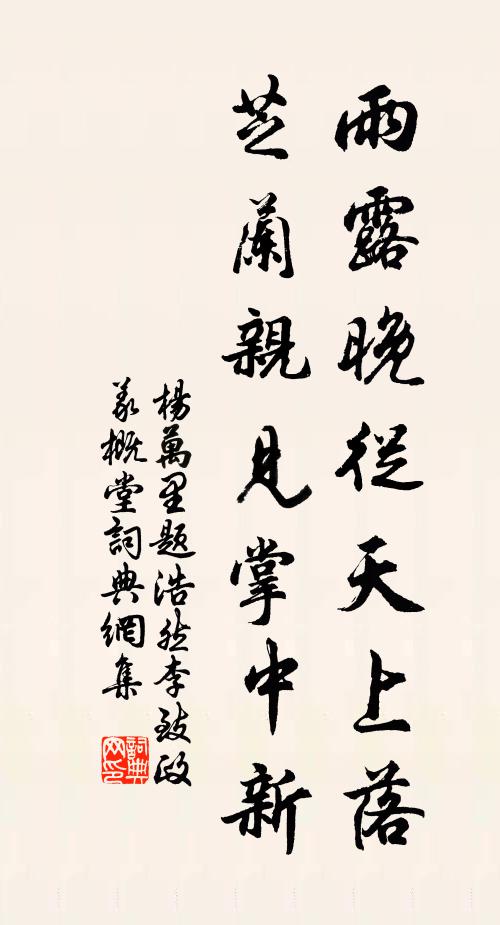 雨露晚從天上落
芝蘭親見掌中新
楊萬里題浩然李致政
義概堂詞典網集
詞典
网印